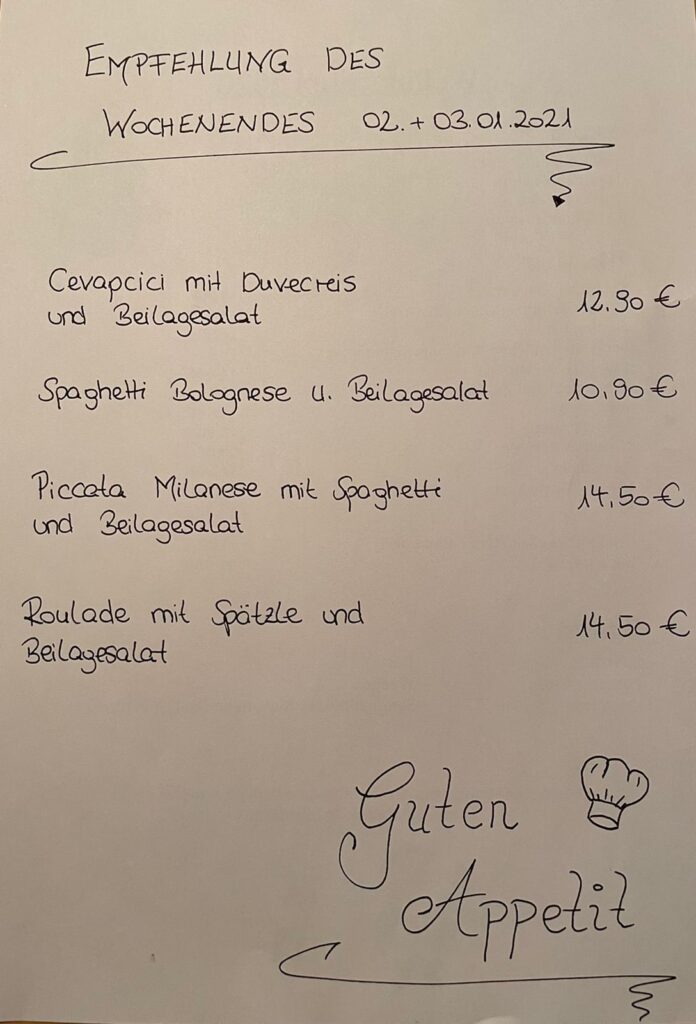 EMPFEHLUNG DES
WOCHENENDES 02. + 03.01.2021
Cevapcici mit Duvecreis
und Beilagesalat 12.90 €
Spaghetti Bolognese u. Beilagesalat 10.90 €
Piccata Milanese mit Spaghetti
und Beilagesalat 14.50 €
Roulade mit Spätzle und
Beilagesalat 14.50 €
Guten
Appetit